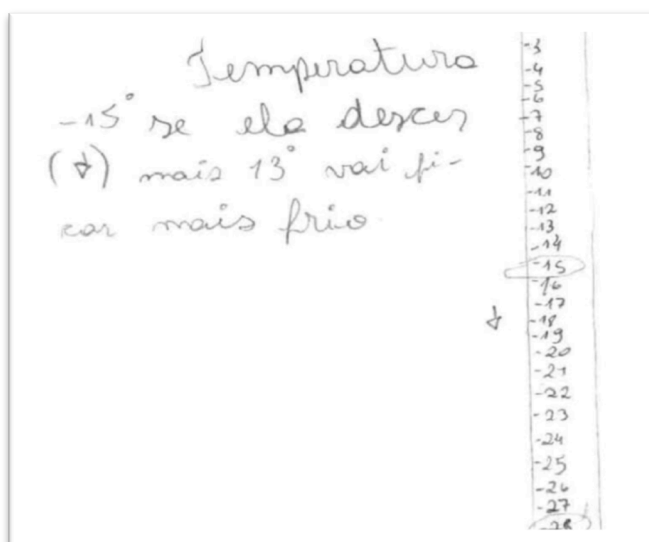 Temperatura
-15° se ela descer
(↓) mais 13° vai fi-
car mais frio.
-3
-4
-5
-6
-7
-8
-9
-10
-11
-12
-13
-14
-15
-16
-17
↓ -18
-19
-20
-21
-22
-23
-24
-25
-26
-27
-28